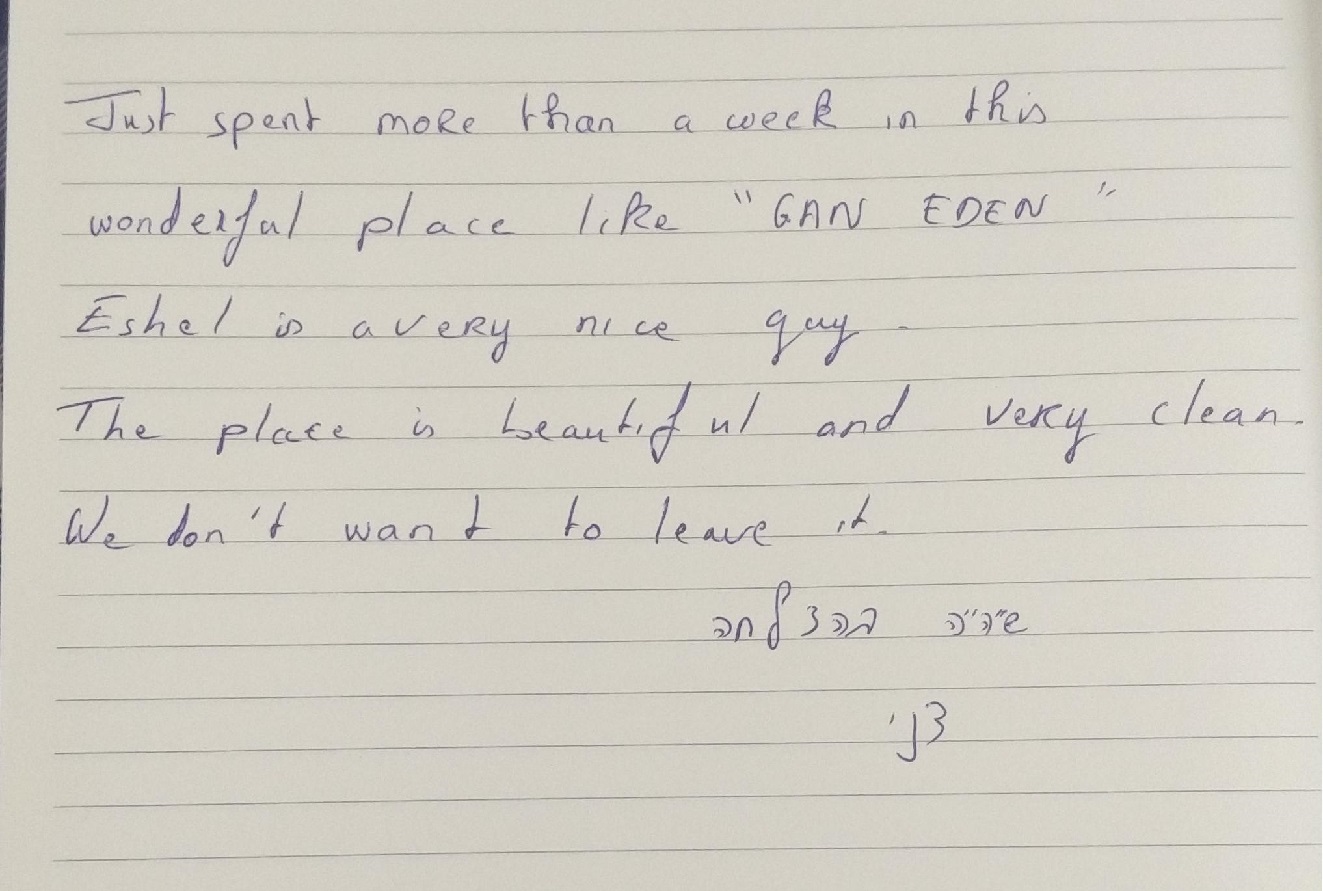 Just spent more than a week in this
wonderful place like "GAN EDEN"
Eshel is a very nice guy.
The place is beautiful and very clean.
We don't want to leave it.
שיהיה בהצלחה